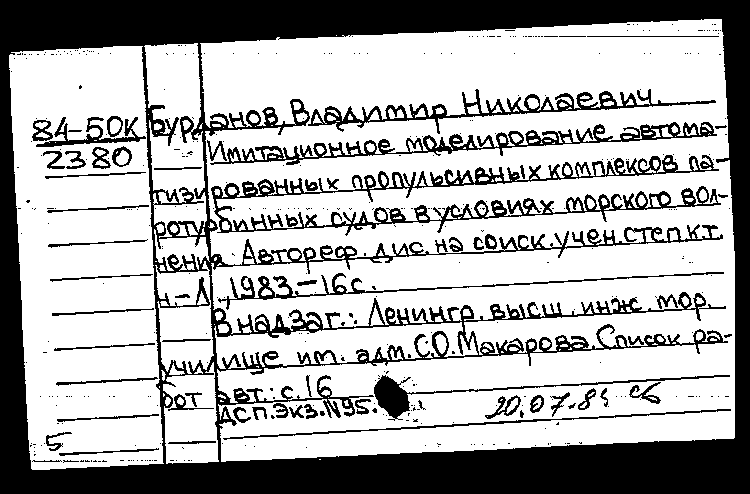 84-50К Бурданов, Владимир Николаевич.
2380 Имитационное моделирование автома-
тизированных пропульсивных комплексов па-
ротурбинных судов в условиях морского вол-
нения. Автореф. дис. на соиск. учен. степ. к.т.
н. - Л., 1983. - 16 с.
В надзаг.: Ленингр. высш. инж. мор.
училище им. адм. С.О. Макарова. Список ра-
бот авт.: с. 16
ДСП. Экз. N95.
5